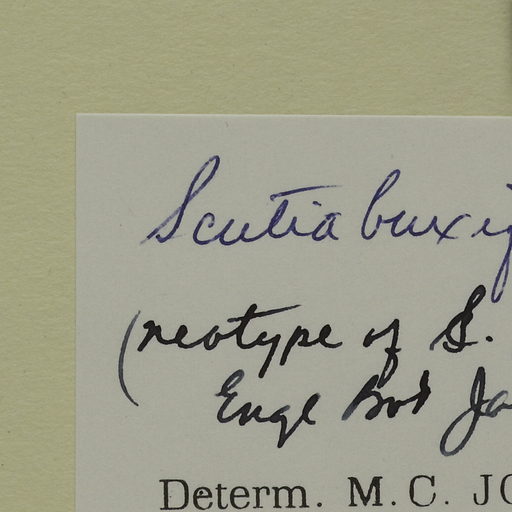 Scutia buxi
(neotype of S.
Engl Bot Ja
Determ. M. C. JO